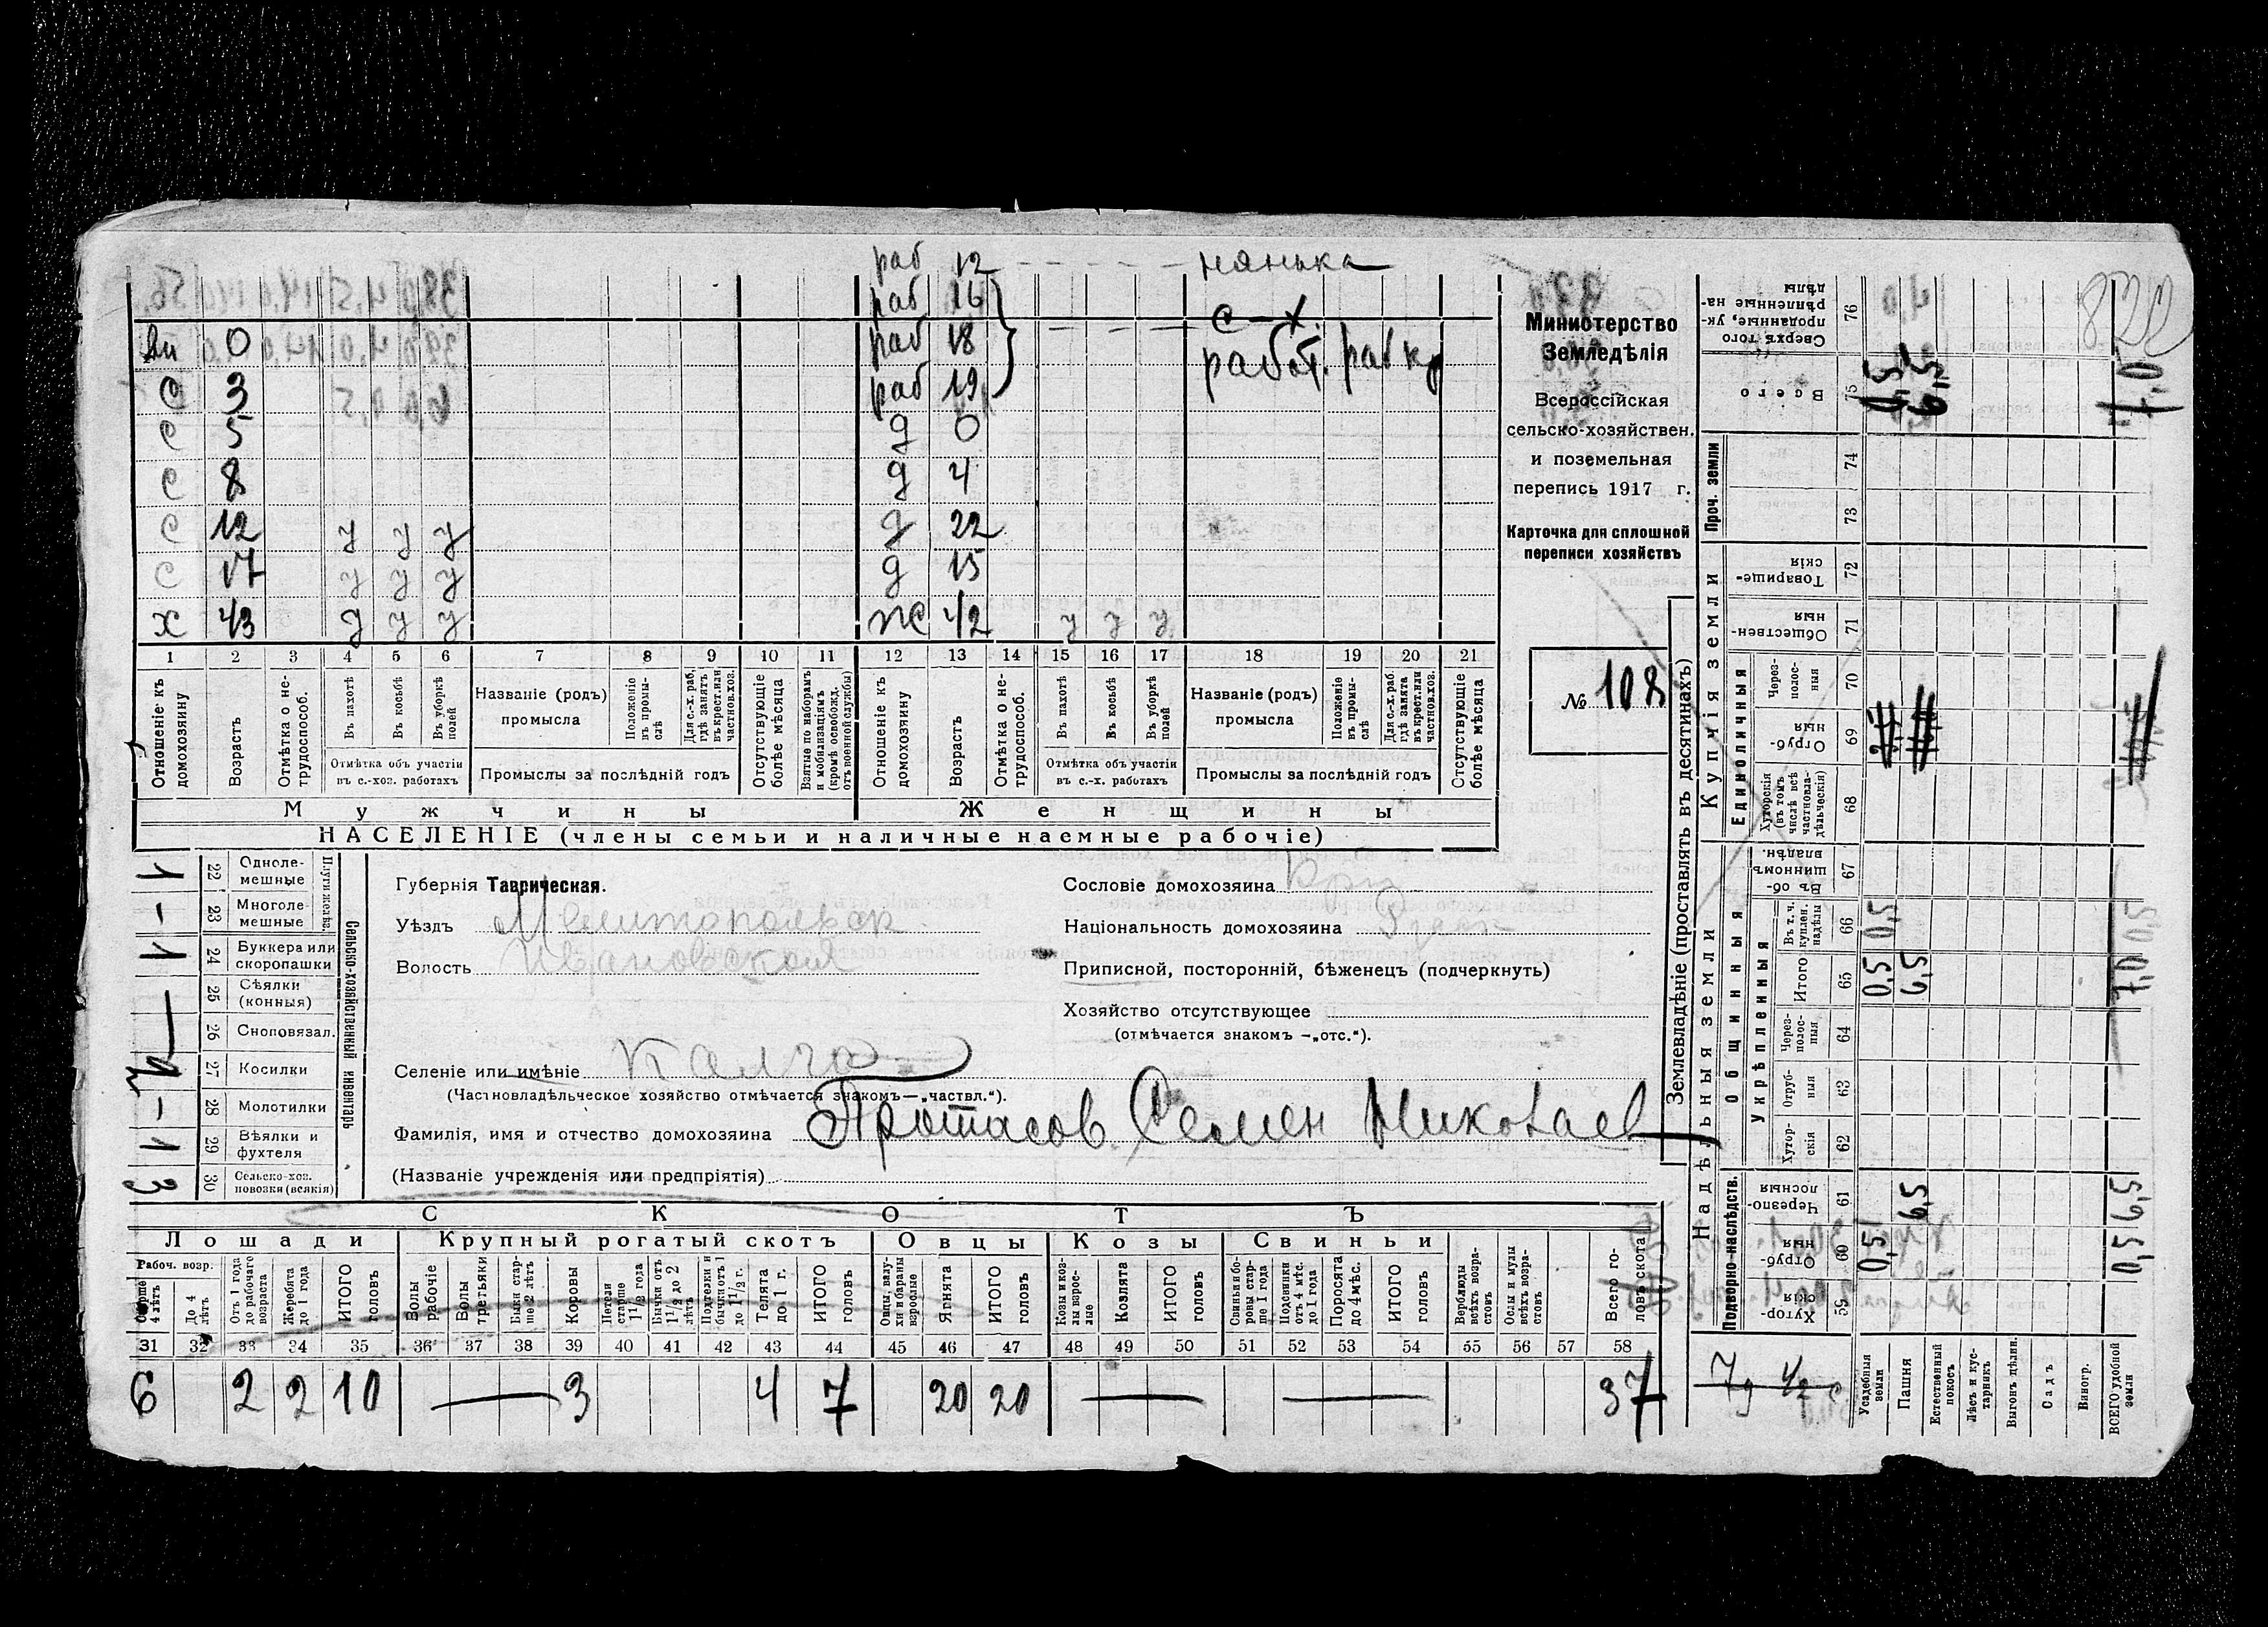 раб 12 — — — — — нянька
раб 16
раб 18 — — — — с-х.
раб 19 работ. рабкр
вн 0
с 3
с 5 д 0
с 8 д 4
с 12 у у у д 22
с 17 у у у д 15
х 43 у у у ж 42 у у у
1 2 3 4 5 6 7 8 9 10 11 12 13 14 15 16 17 18 19 20 21
Отношеніе къ домохозяину
Возрастъ
Отмѣтка о не-трудоспособ.
Въ пахотѣ
Въ косьбѣ
Въ уборкѣ полей
Отмѣтка объ участіи въ с.-хоз. работахъ
Названіе (родъ) промысла
Положеніе въ промы-слѣ
Для с.-х. раб. гдѣ занятъ въ крест. или частнов. хоз.
Промыслы за послѣдній годъ
Отсутствующіе болѣе мѣсяца
Взятые по наборамъ и мобилизаціямъ (кромѣ освобожд. отъ военной службы)
Отношеніе къ домохозяину
Возрастъ
Отмѣтка о не-трудоспособ.
Въ пахотѣ
Въ косьбѣ
Въ уборкѣ полей
Отмѣтка объ участіи въ с.-х. работахъ
Названіе (родъ) промысла
Положеніе въ промы-слѣ
Для с.-х. раб. гдѣ занята въ крест. или частнов. хоз.
Промыслы за послѣдній годъ
Отсутствующіе болѣе мѣсяца
Мужчины Женщины
НАСЕЛЕНІЕ (члены семьи и наличные наемные рабочіе)
Министерство
Земледѣлія
Всероссійская
сельско-хозяйствен.
и поземельная
перепись 1917 г.
Карточка для сплошной
переписи хозяйствъ
№ 108
Сельско-хозяйственный инвентарь
Плуги желѣз.
22 Одноле-мешные 1
23 Многоле-мешные —
24 Буккера или скоропашки 1
25 Сѣялки (конныя) —
26 Сноповязал.
27 Косилки 1
28 Молотилки —
29 Вѣялки и фухтеля 1
30 Сельско-хоз. повозки (всякія) 3
Губернія Таврическая.
Уѣздъ Мелитопольск
Волость Ивановской
Селеніе или имѣніе Калга
(Частновладѣльческое хозяйство отмѣчается знакомъ—„частвл.“).
Фамилія, имя и отчество домохозяина Протасов Семен Николаев
(Названіе учрежденія или предпріятія)
Сословіе домохозяина Кр
Національность домохозяина Русск
Приписной, посторонній, бѣженецъ (подчеркнуть)
Хозяйство отсутствующее
(отмѣчается знакомъ —„отс.“).
СКОТЪ
Лошади Крупный рогатый скотъ Овцы Козы Свиньи
Рабоч. возр.
Старше 4 лѣтъ
До 4 лѣтъ
Отъ 1 года до рабочаго возраста
Жеребята до 1 года
ИТОГО головъ
Волы рабочіе
Волы третьяки
Быки стар-ше 2 лѣтъ
Коровы
Нетели старше 1 1/2 года
Бычки отъ 1 1/2 до 2 лѣтъ
Подтелки и бычки отъ 1 до 1 1/2 г.
Телята до 1 г.
ИТОГО головъ
Овцы, валу-хи и бараны взрослые
Ягнята
ИТОГО головъ
Козы и коз-лы взрос-лые
Козлята
ИТОГО головъ
Свиньи и бо-ровы стар-ше 1 года
Подсвинки отъ 4 мѣс. до 1 года
Поросята до 4 мѣс.
ИТОГО головъ
Верблюды всѣхъ возра-стовъ
Ослы и мулы всѣхъ возра-стовъ
Всего го-ловъ скота
31 32 33 34 35 36 37 38 39 40 41 42 43 44 45 46 47 48 49 50 51 52 53 54 55 56 57 58
6 2 2 10 — 3 4 7 20 20 — — 37
Землевладѣніе (проставлять въ десятинахъ)
Надѣльныя земли
Купчія земли
Проч. земли
Общинныя
Единоличныя
Укрѣпленныя
Подворно-наслѣдств.
76 Сверхъ того проданные, ук-рѣпленные на-дѣлы
75 Всего 0,5 6,5 7,0
74
73
72 Товарище-скія
71 Обществен-ныя
70 Через-полос-ныя
69 Отруб-ныя
68 Хуторскія (въ томъ числѣ всѣ частновла-дѣльческія)
67 Въ об-щинномъ владѣн.
66 Въ т. ч. куплен. надѣлы 0,5 0,5
65 Итого 0,5 6,5 7,0
64 Через-полос-ныя
63 Отруб-ныя
62 Хутор-скія
61 Черезпо-лосныя 6,5 6,5
60 Отруб-ныя 0,5 0,5
59 Хутор-скія
7 д 1/2 с.
Усадебныя земли
Пашня
Естественный покосъ
Лѣсъ и кус-тарникъ
Выгонъ дѣлин.
Садъ
Виногр.
ВСЕГО удобной земли